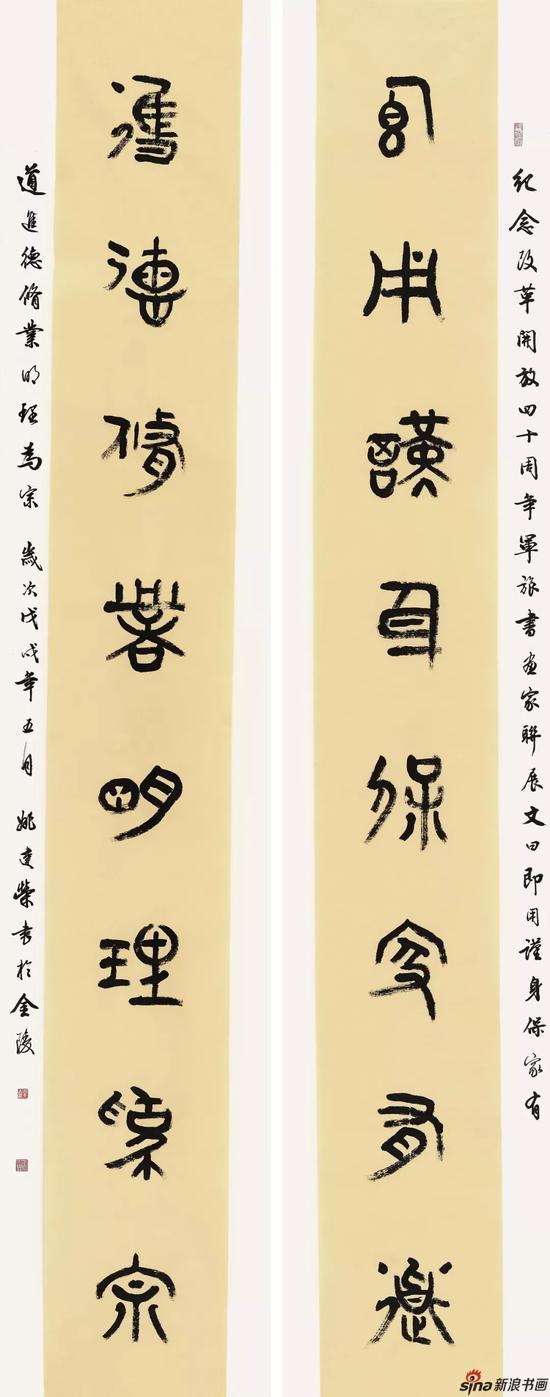 紀念改革開放四十周年軍旅書畫家聯展文曰即用謹身保家有
即用謹身保家有道
進德脩業明理為宗
道進德脩業明理為宗 歲次戊戌年五月 姚建榮書於金陵
sina新浪书画